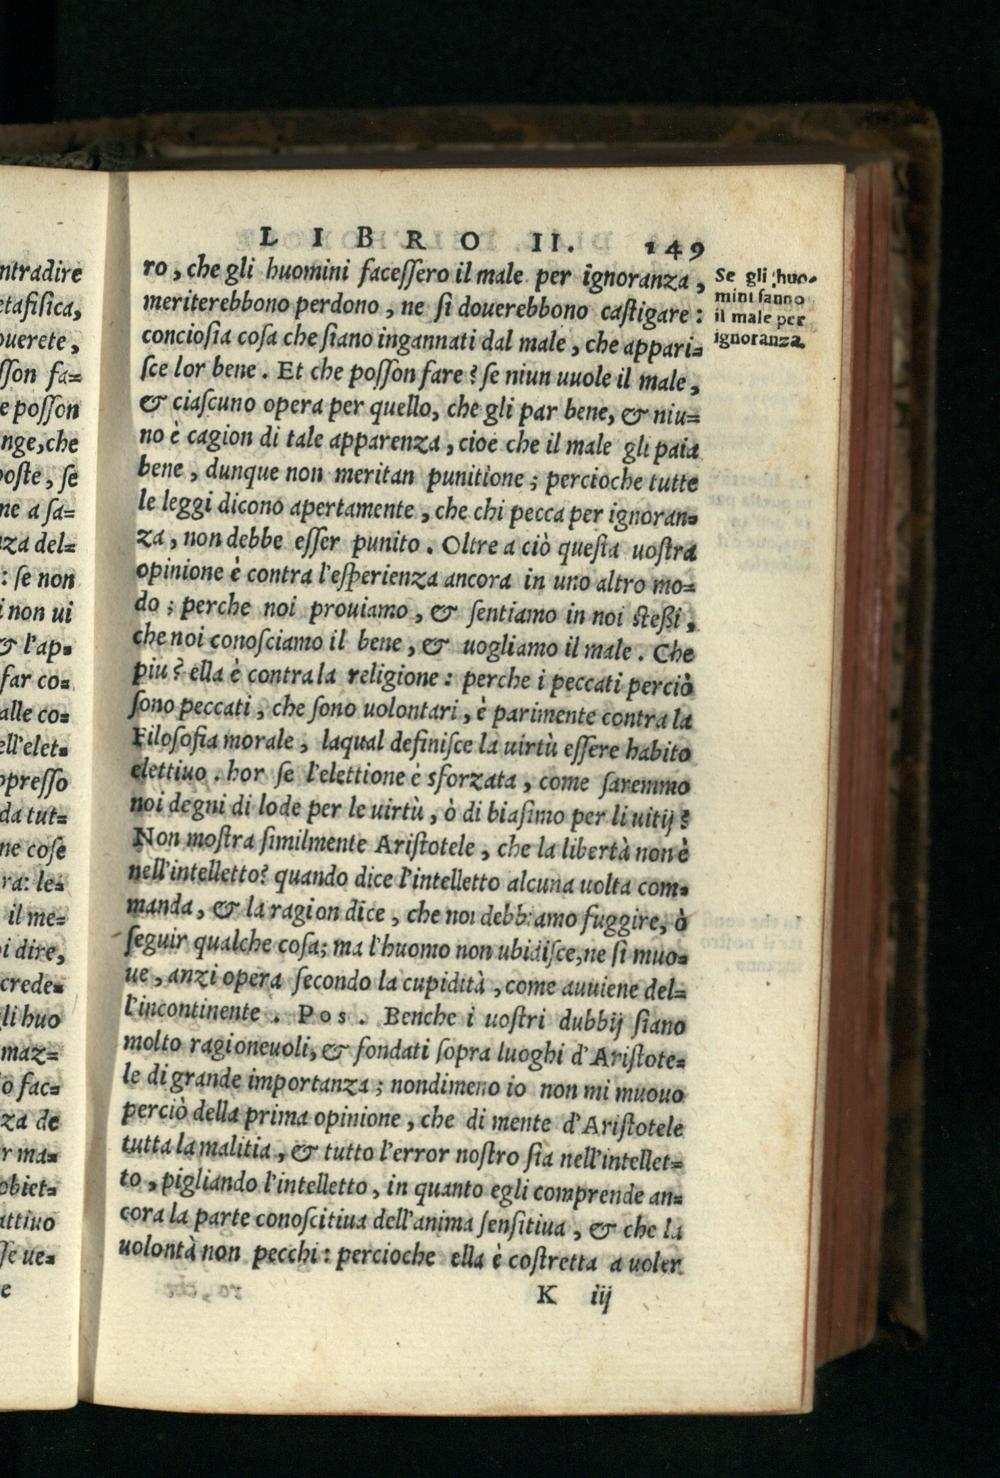 ntradire
etafisica,
ouerete,
ſſon fa=
e poſſon
nge, che
poste, ſe
ne a ſa=
nza del=
: ſe non
i non ui
& l'ap=
far co=
alle co=
ell'elet=
ppreſſo
da tut=
ne coſe
ra: le=
il me=
oi dire,
crede=
gli huo
maz=
o fac=
za de
r ma=
obiet=
attiuo
ſe ue=
e
LIBRO II. 149
ro, che gli huomini faceſſero il male per ignoranza,
meriterebbono perdono, ne ſi douerebbono castigare:
concioſia coſa che ſiano ingannati dal male, che appari=
ſce lor bene. Et che poſſon fare? ſe niun uuole il male,
& ciaſcuno opera per quello, che gli par bene, & niu=
no è cagion di tale apparenza, cioe che il male gli paia
bene, dunque non meritan punitione; percioche tutte
le leggi dicono apertamente, che chi pecca per ignoran=
za, non debbe eſſer punito. Oltre a ciò questa uostra
opinione è contra l'eſperienza ancora in uno altro mo=
do; perche noi prouiamo, & ſentiamo in noi steßi,
che noi conoſciamo il bene, & uogliamo il male. Che
piu? ella è contra la religione: perche i peccati perciò
ſono peccati, che ſono uolontari, è parimente contra la
Filoſofia morale, laqual definiſce la uirtù eſſere habito
elettiuo. hor ſe l'elettione è sforzata, come ſaremmo
noi degni di lode per le uirtù, ò di biaſimo per li uitij?
Non mostra ſimilmente Aristotele, che la libertà non è
nell'intelletto? quando dice l'intelletto alcuna uolta com=
manda, & la ragion dice, che noi debbiamo fuggire, ò
ſeguir qualche coſa; ma l'huomo non ubidiſce, ne ſi muo=
ue, anzi opera ſecondo la cupidità, come auuiene del=
l'incontinente. Pos. Benche i uostri dubbij ſiano
molto ragioneuoli, & fondati ſopra luoghi d'Aristote=
le di grande importanza; nondimeno io non mi muouo
perciò della prima opinione, che di mente d'Aristotele
tutta la malitia, & tutto l'error nostro ſia nell'intellet=
to, pigliando l'intelletto, in quanto egli comprende an=
cora la parte conoſcitiua dell'anima ſenſitiua, & che la
uolontà non pecchi: percioche ella è costretta a uoler
K iij
Se gli huo-
mini fanno
il male per
ignoranza.